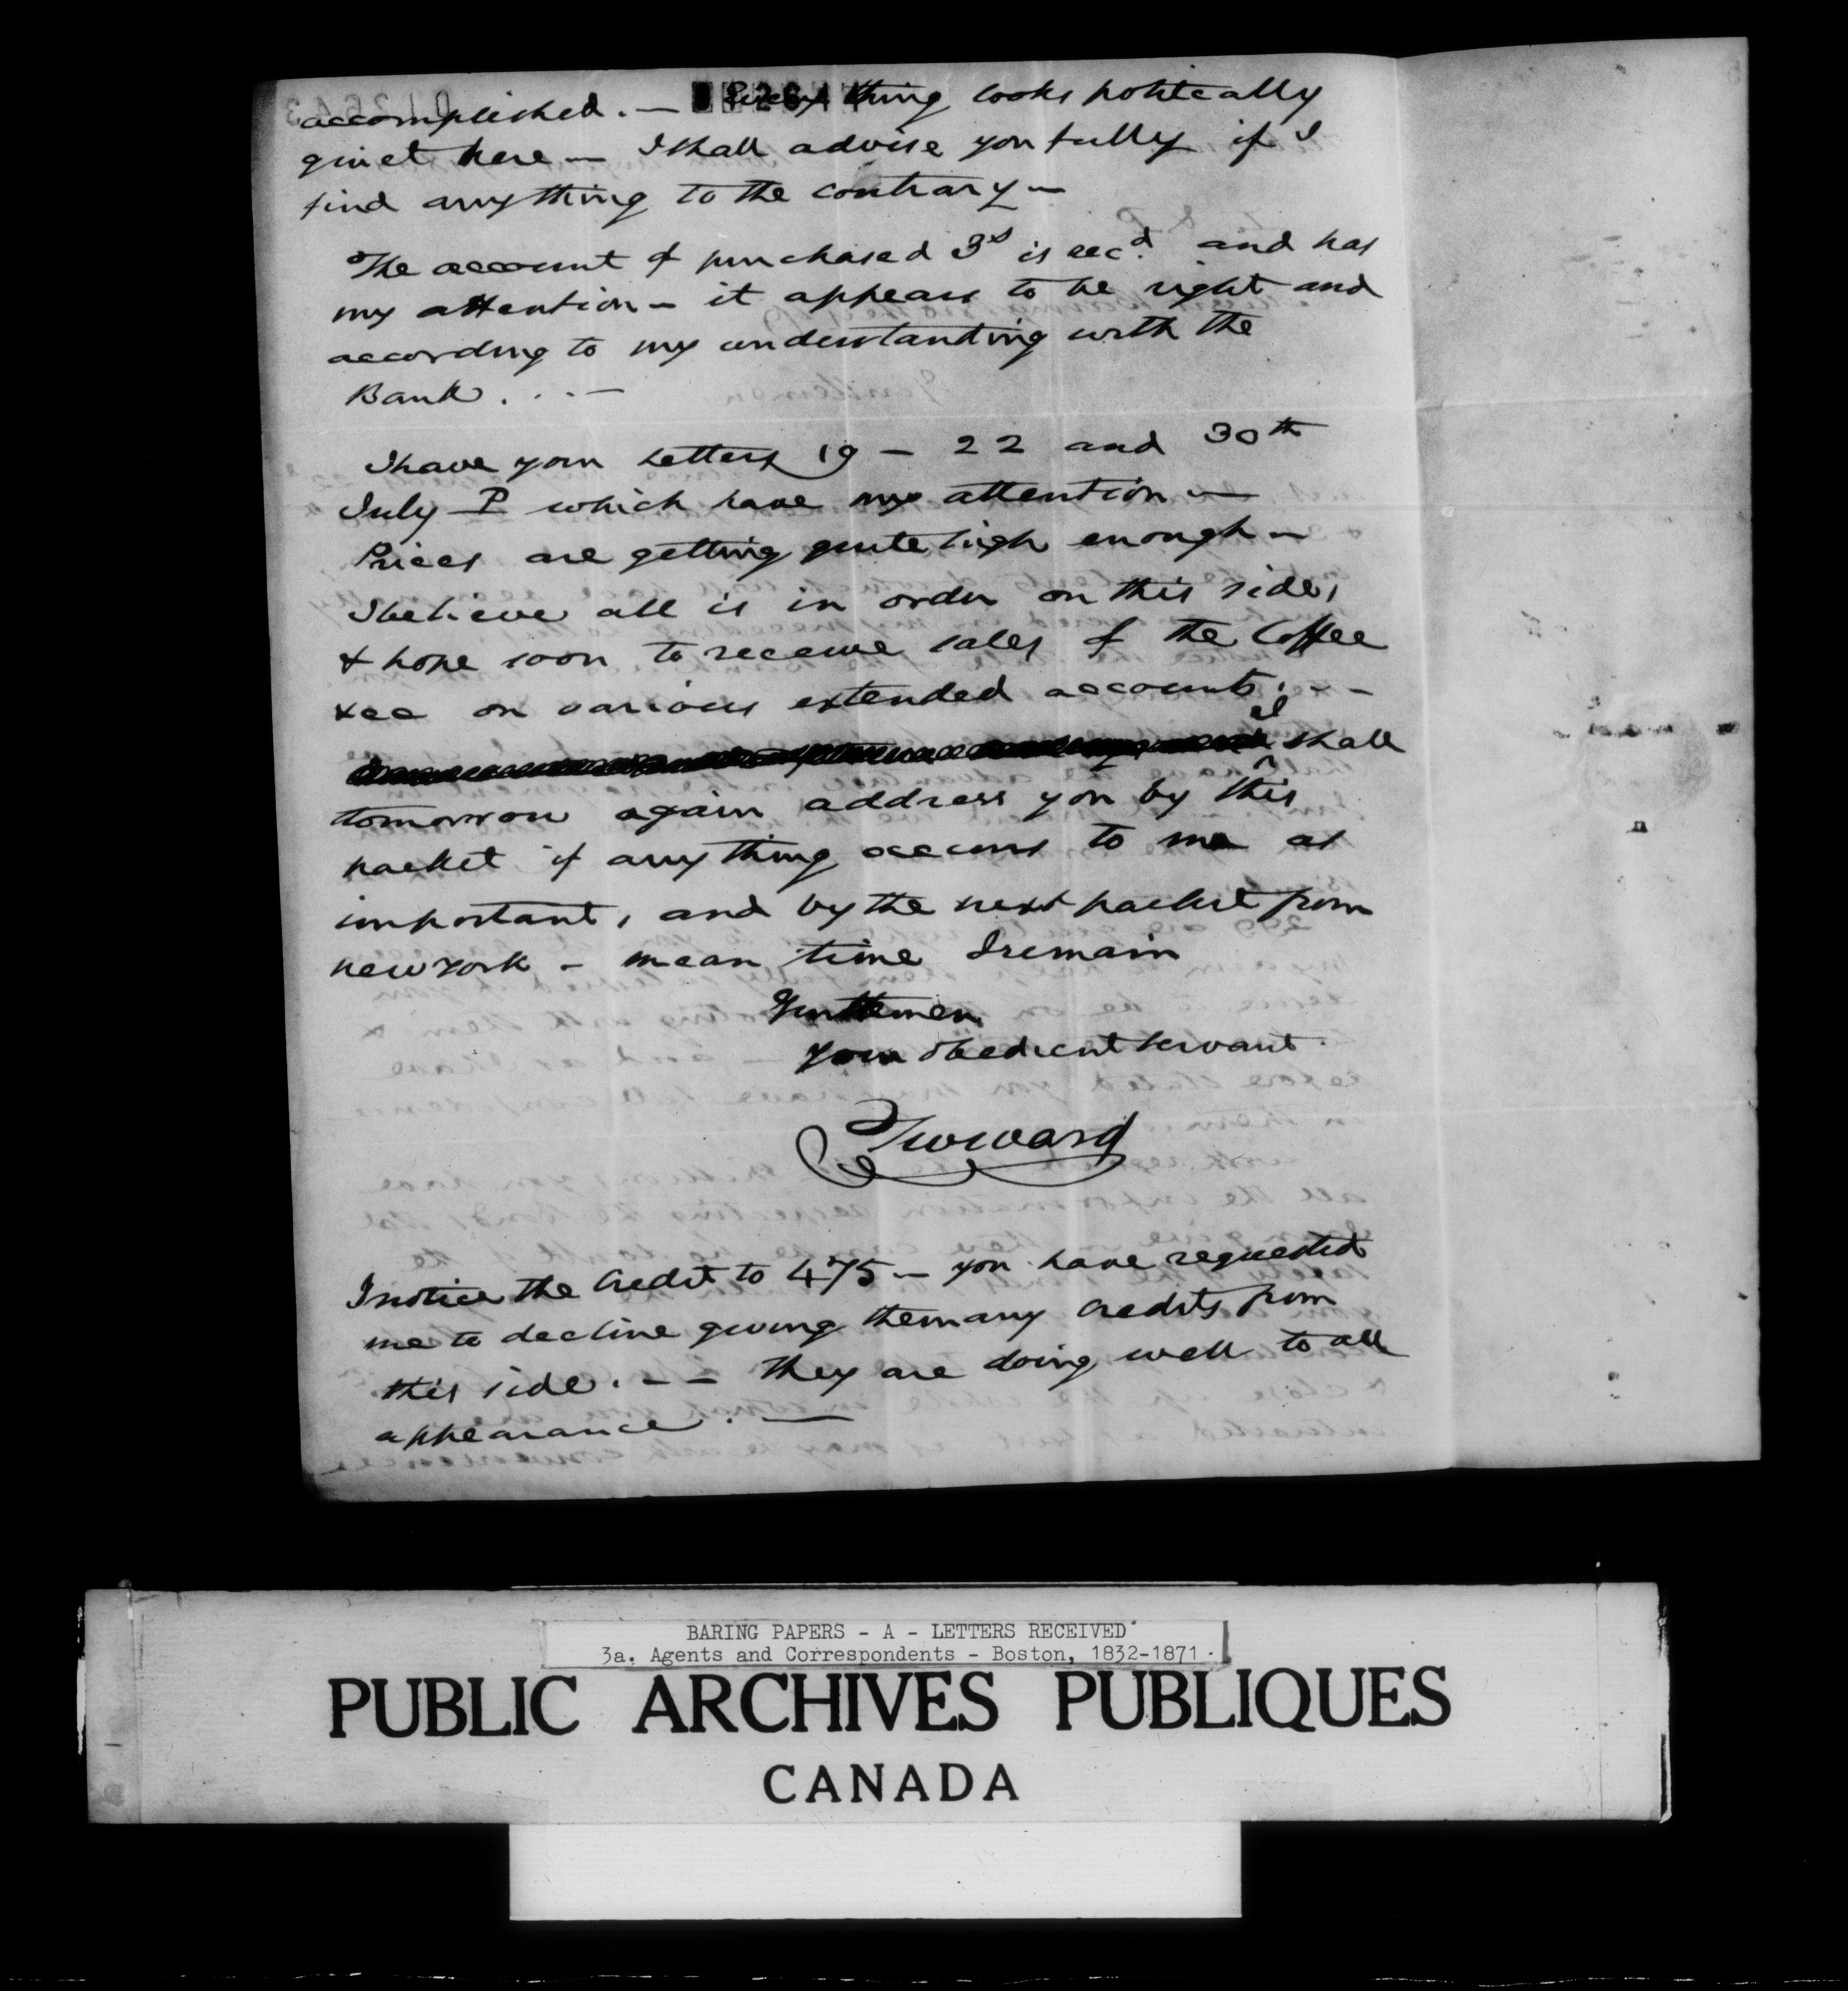 accomplished. — Every thing looks politically
quiet here — I shall advise you fully if I
find any thing to the contrary —
The account of purchased 3s is recd. and has
my attention — it appears to be right and
according to my understanding with the
Bank . . . —
I have your letters 19 — 22 and 30th
July P which have my attention —
Prices are getting quite high enough —
I believe all is in order on this side,
& hope soon to receive sales of the Coffee
&cc on various extended accounts. - -
I shall
tomorrow again address you by this
packet if any thing occurs to me as
important, and by the next packet from
new york — mean time I remain
Gentlemen
Your obedient servant.
TWWard
I notice the Credit to 475 — you have requested
me to decline giving them any Credits from
this side. — — They are doing well to all
appearance. —
BARING PAPERS - A - LETTERS RECEIVED
3a. Agents and Correspondents - Boston, 1832-1871.
PUBLIC ARCHIVES PUBLIQUES
CANADA